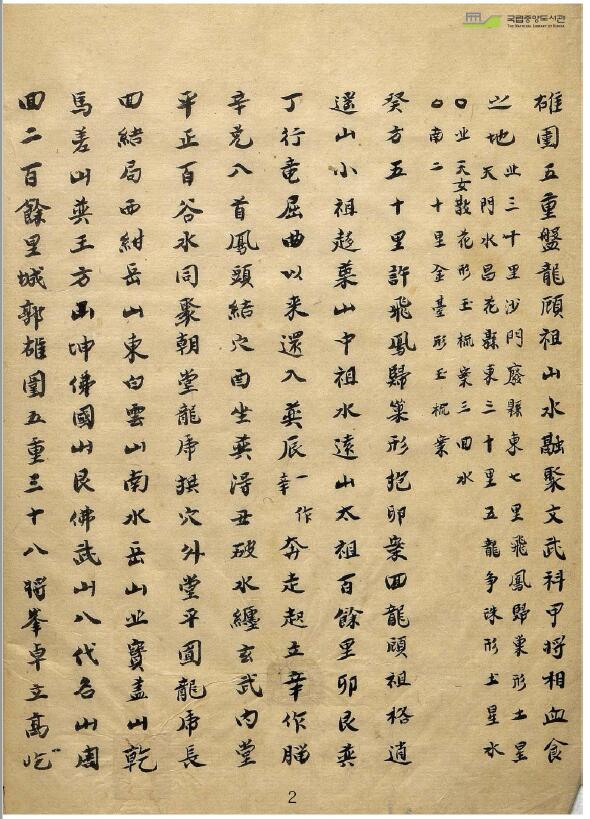 국립중앙도서관
THE NATIONAL LIBRARY OF KOREA
雄圍五重盤龍顧祖山水融聚文武科甲將相血食
之地北三十里沙門廢縣東七里飛鳳歸巢形土星
天門水昌花縣東三十里五龍争珠形土星水
○北天女散花形玉梳案三回水
○南二十里金臺形玉梳案
癸方五十里許飛鳳歸巢形抱卵案回龍顧祖格逍
遥山小祖趍栗山中祖水遠山太祖百餘里卯艮巽
丁行竜屈曲以来還入巽辰一作奔走起立辛作腦
辛兌入首鳳頭結穴酉坐巽淂丑破水纏玄武内堂
平正百谷水同聚朝堂龍虎拱穴外堂平圓龍虎長
回結局西紺岳山東白雲山南水岳山北寶盖山乾
馬差山巽王方山坤佛國山艮佛武山八代名山周
回二百餘里城郭雄圍五重三十八將峯卓立高
2